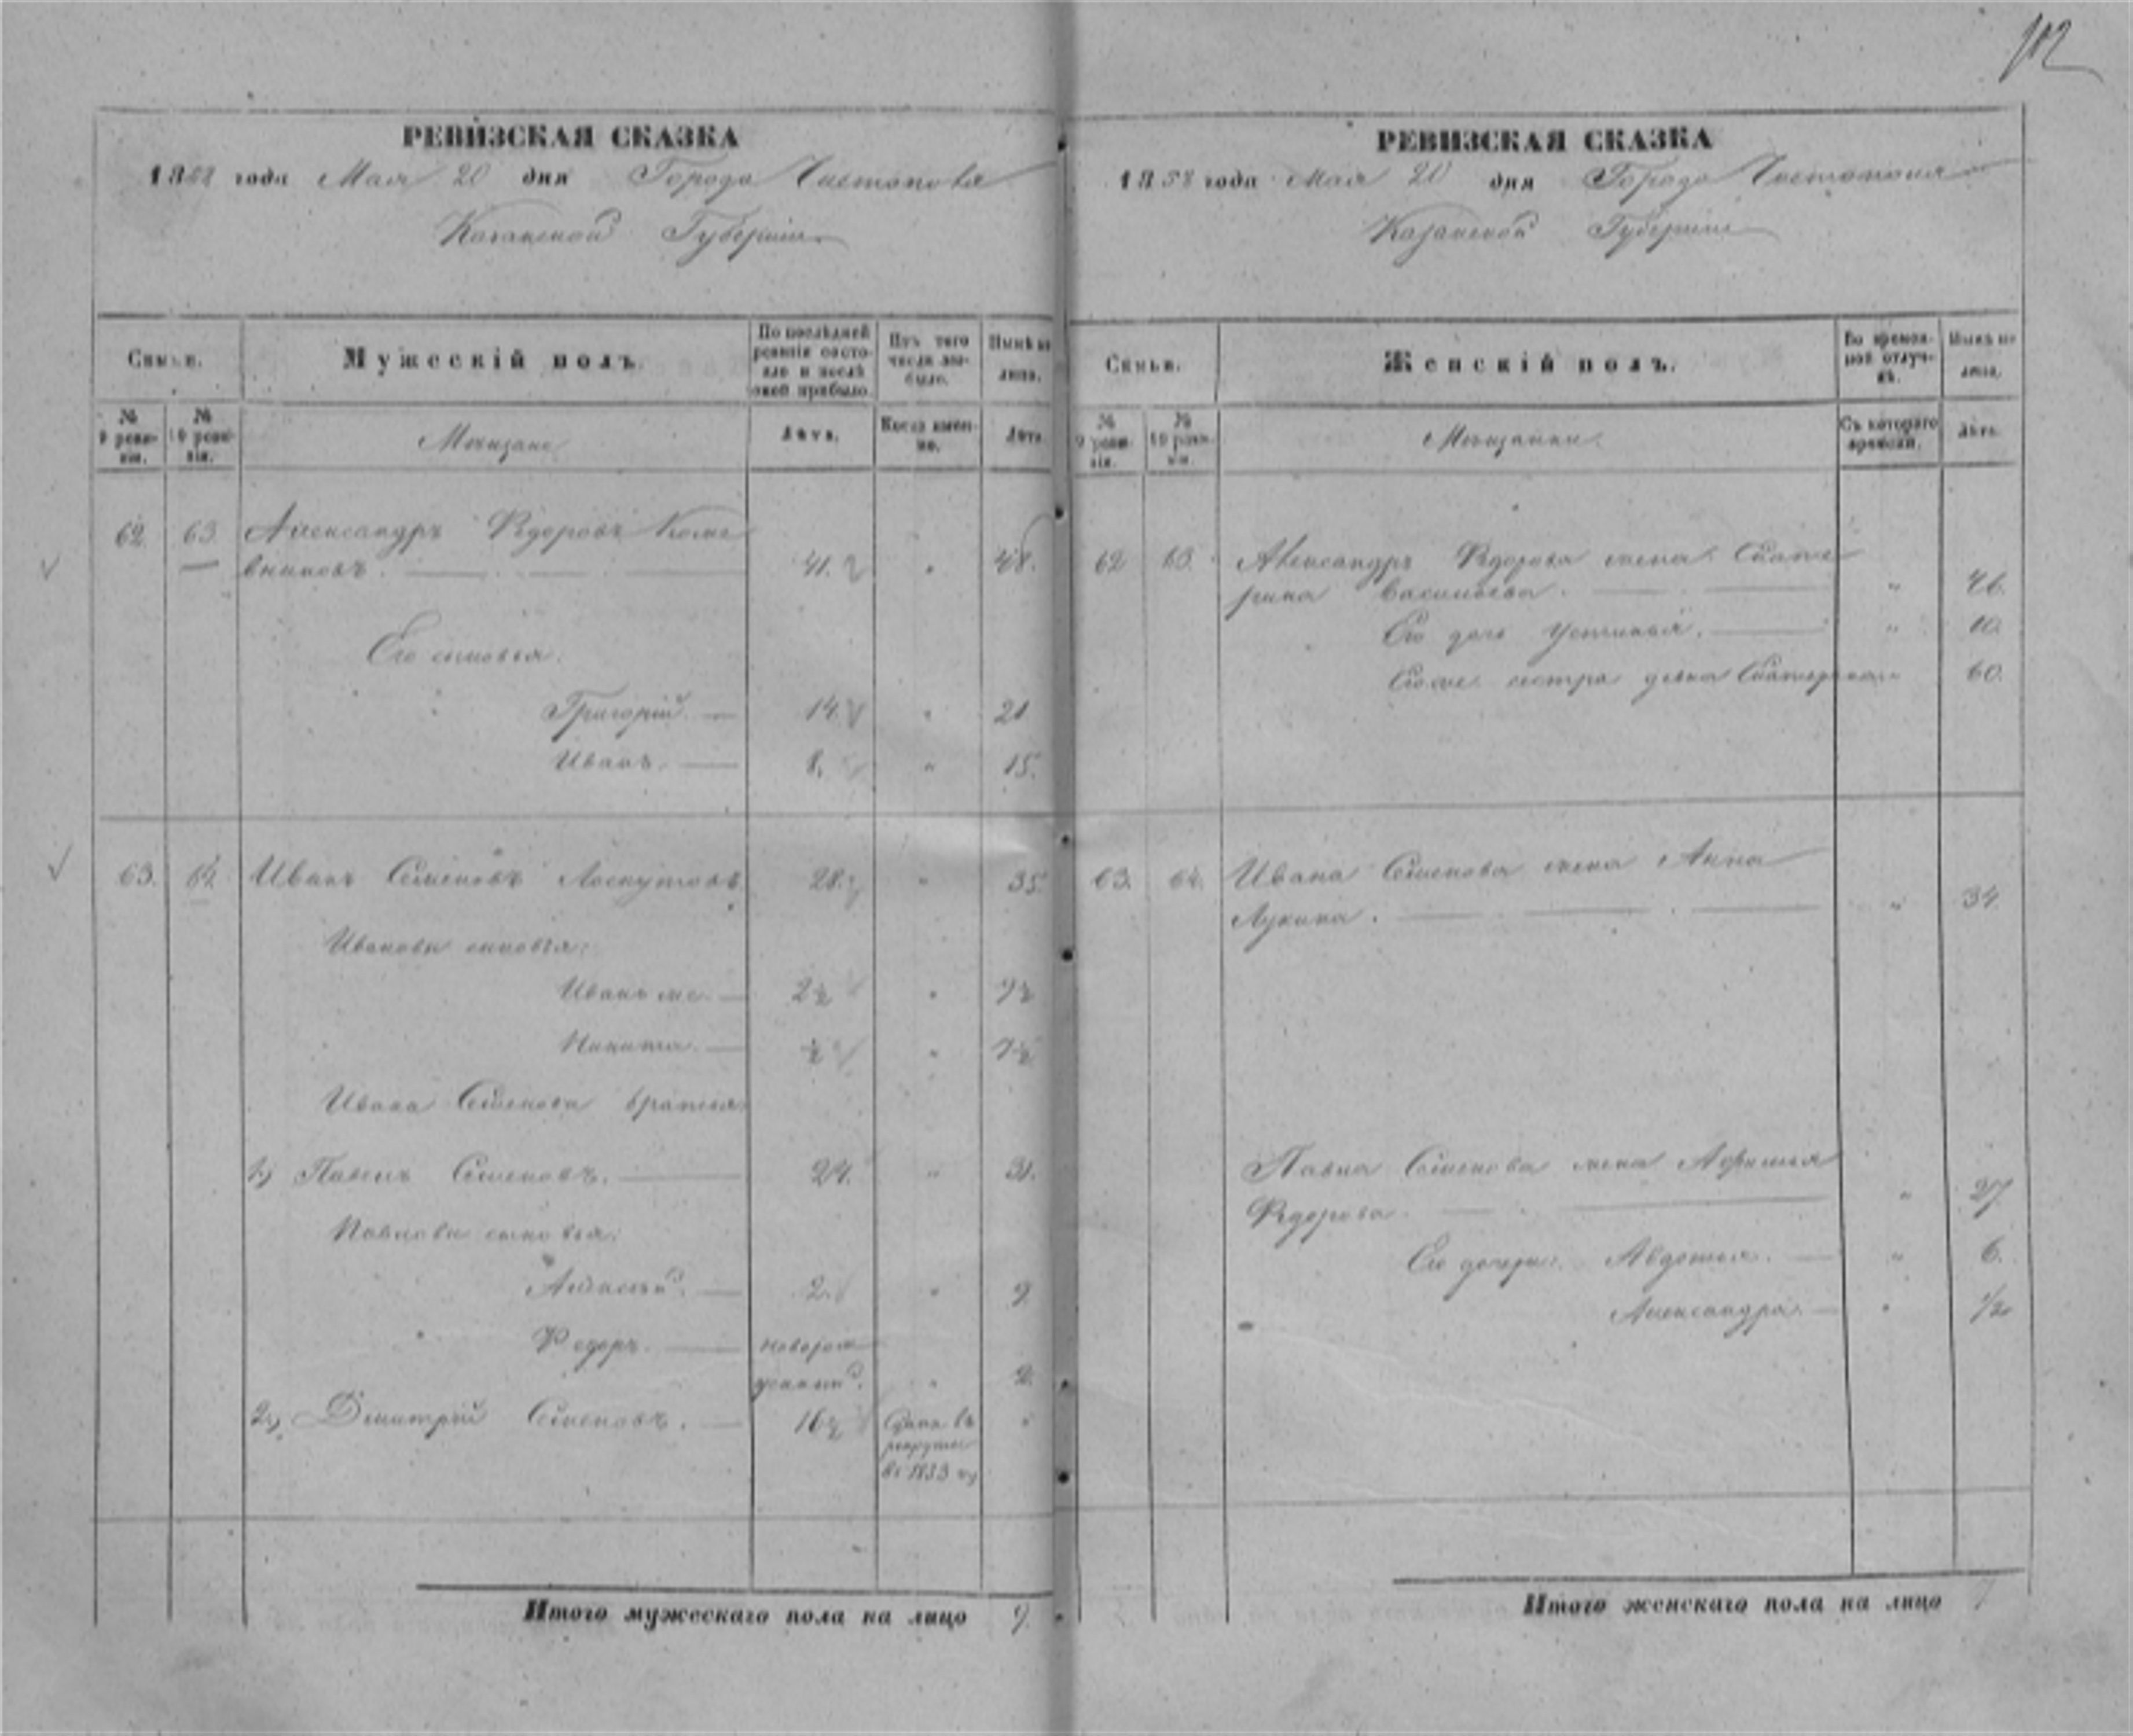 102
РЕВИЗСКАЯ СКАЗКА
1858 года Мая 20 дня Города Чистополя
Казанской Губернии
Семьи.
Мужескій полъ.
По послѣдней ревизіи состояло и послѣ оной прибыло.
Изъ того числа выбыло.
Нынѣ на лицо.
№ 9 ревизіи.
№ 10 ревизіи.
Мещане
Лѣта.
Когда именно.
Лѣта.
62. 63. Александръ Ѳедоровъ
вниковъ. 41. " 48.
Его сыновья.
Григорій. 14. " 21
Иванъ. 8. " 15.
63. 64. Иванъ Семеновъ Лоскутовъ 28. " 35.
Ивановы сыновья:
Иванъ же. 2½ " 9½
Никита. ½ " 7½
Ивана Семенова братья:
1.) Павелъ Семеновъ. 24. " 31.
Павловы сыновья:
Алексѣй. 2. " 9.
Ѳедоръ. новорож
денный. " 2.
2.) Дмитрій Семеновъ. 16½ Сданъ въ "
рекруты
въ 1853 г.
Итого мужескаго пола на лицо 9.
РЕВИЗСКАЯ СКАЗКА
1858 года Мая 20 дня Города Чистополя
Казанской Губерніи
Семьи.
Женскій полъ.
Во временной отлучкѣ.
Нынѣ на лицо.
№ 9 ревизіи.
№ 10 ревизіи.
Мещанки.
Съ котораго времени.
Лѣта.
62 63. Александра Ѳедорова жена Екате
рина Васильева. " 46.
Его дочь Устинья. " 10.
Его же сестра девка Екатерина " 60.
63. 64. Ивана Семенова жена Анна
Лукина. " 34.
Павла Семенова жена
Ѳедорова. " 27
Его дочери: Авдотья. " 6.
Александра. " ½
Итого женскаго пола на лицо 7